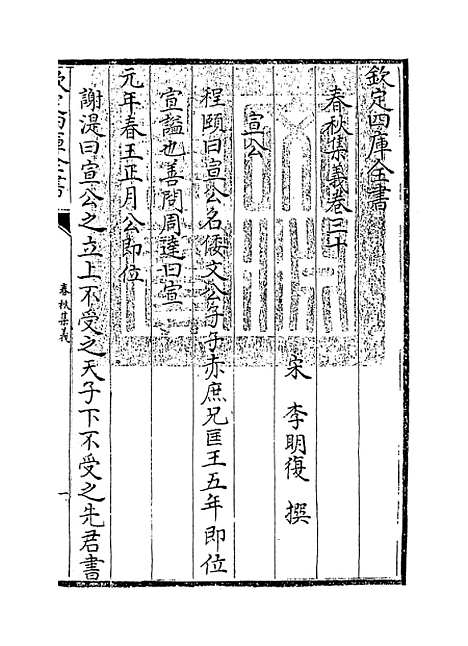 欽定四庫全書
春秋集義卷三十
宋 李明復 撰
宣公
程頤曰宣公名倭文公子子赤庶兄匡王五年即位
宣諡也善問周達曰宣
元年春王正月公即位
謝湜曰宣公之立上不受之天子下不受之先君書
欽定四庫全書
春秋集義
一